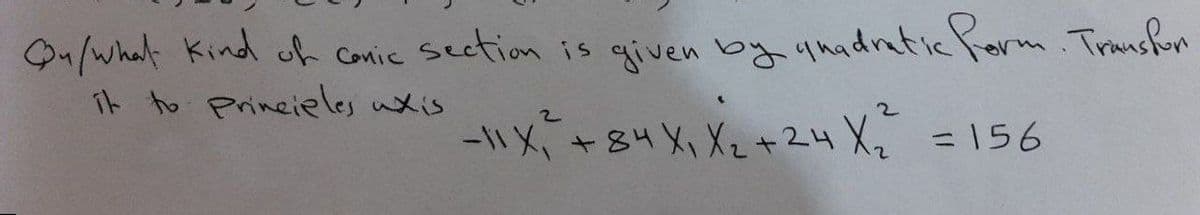 Qu/what kind of conic section is given by quadratic form. Transfor
it to principles axis
-11 X₁² + 84 X₁ X₂ + 24 X₂² = 156